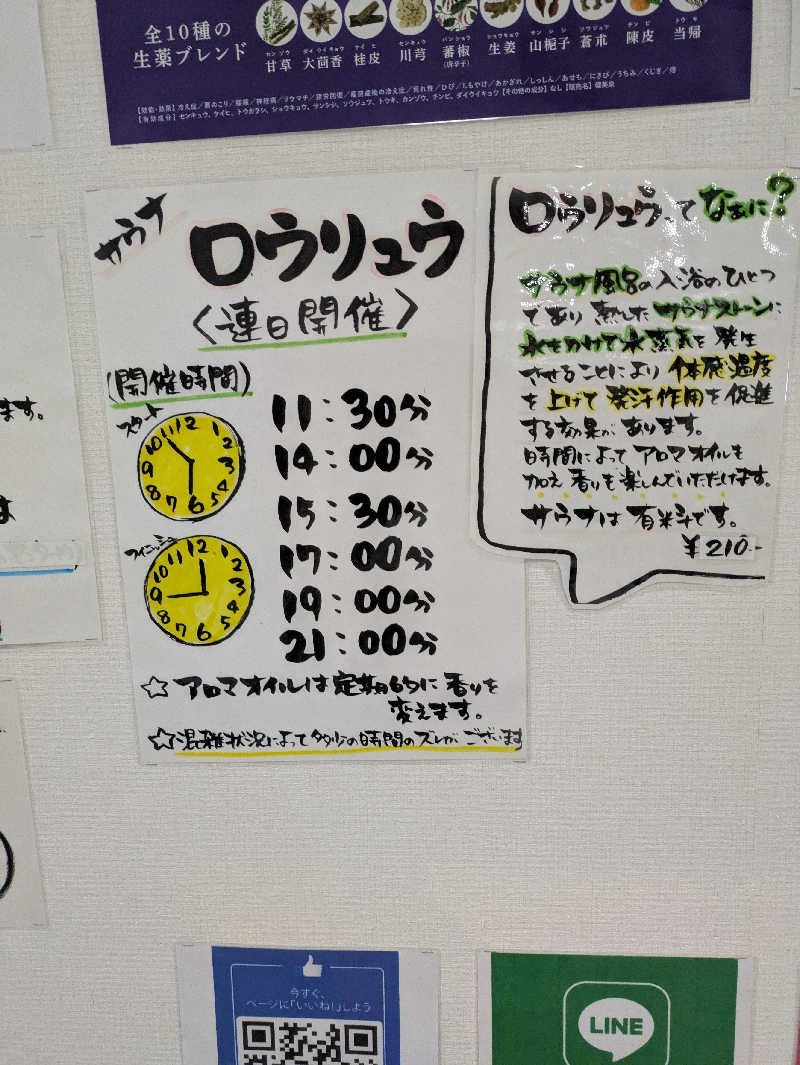 全10種の
生薬ブレンド
カンゾウ
甘草
ダイウイキョウ
大茴香
ケイヒ
桂皮
センキュウ
川芎
バンショウ
蕃椒
(唐辛子)
ショウキョウ
生姜
サンシシ
山梔子
ソウジュツ
蒼朮
チンピ
陳皮
トウキ
当帰
サウナ
ロウリュウ
〈連日開催〉
(開催時間)
スタート
11:30分
14:00分
15:30分
フィニッシュ
17:00分
19:00分
21:00分
☆アロマオイルは定期的に香りを
変えます。
☆混雑状況によって多少の時間のズレがございます
ロウリュウってなぁに?
サウナ風呂の入浴のひとつ
であり熱したサウナストーンに
水をかけて水蒸気を発生
させることにより体感温度
を上げて発汗作用を促進
する効果があります。
時間によってアロマオイルを
加え香りを楽しんでいただけます。
サウナは有料です。
¥210.-
ます。
今すぐ、
ページに「いいね!」しよう
LINE